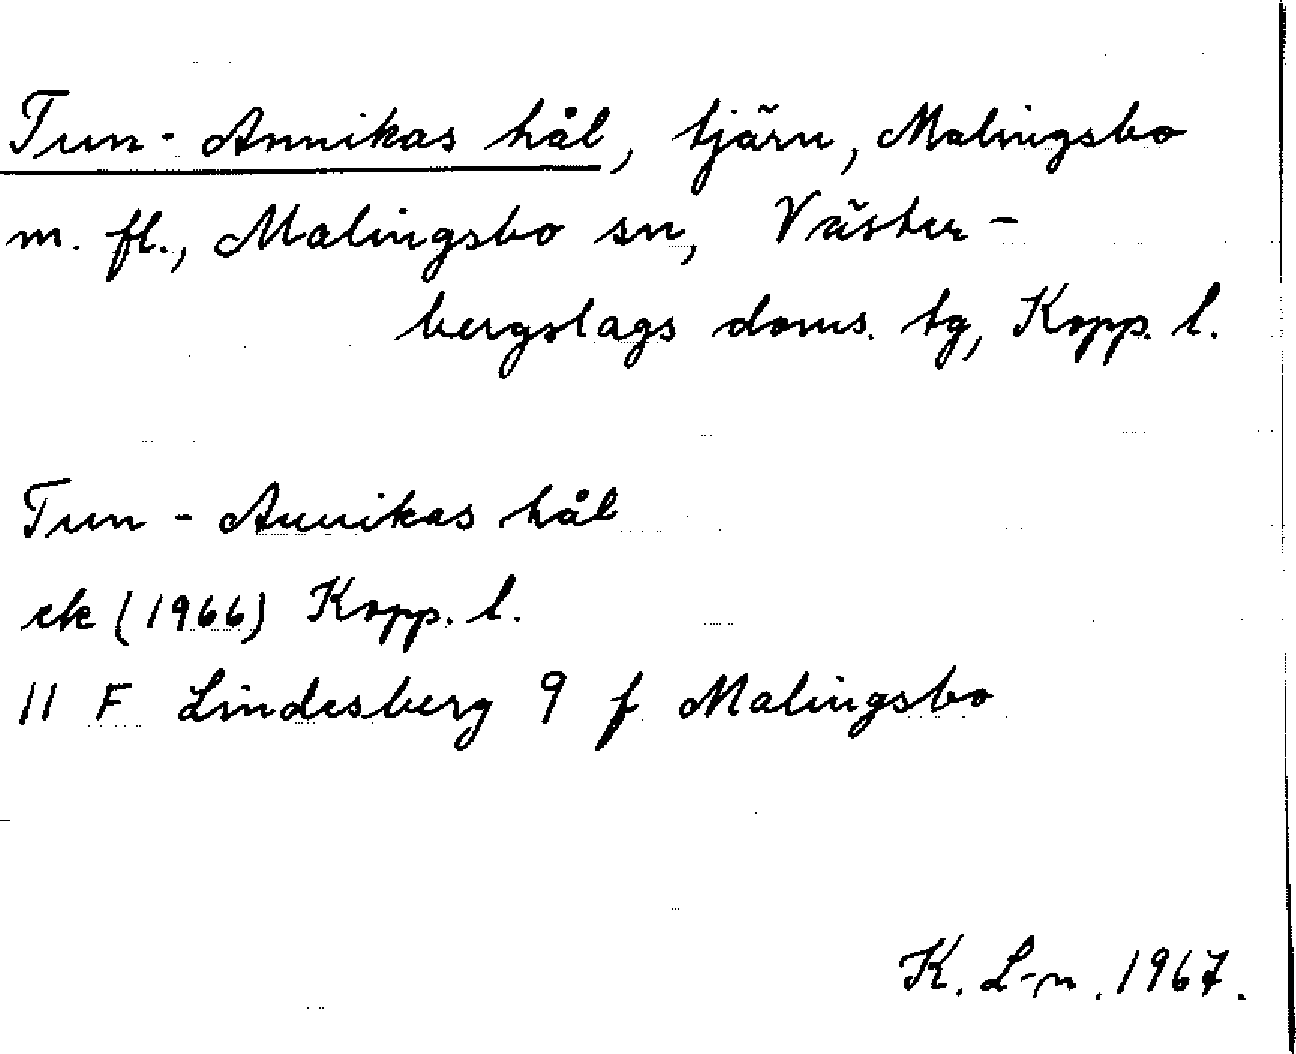 Tun-Annikas hål, tjärn, Malingsbo
m. fl., Malingsbo sn, Väster-
bergslags doms. tg, Kopp. l.
Tun-Annikas hål
ek (1966) Kopp. l.
11 F Lindesberg 9 f Malingsbo
K. L-n. 1967.